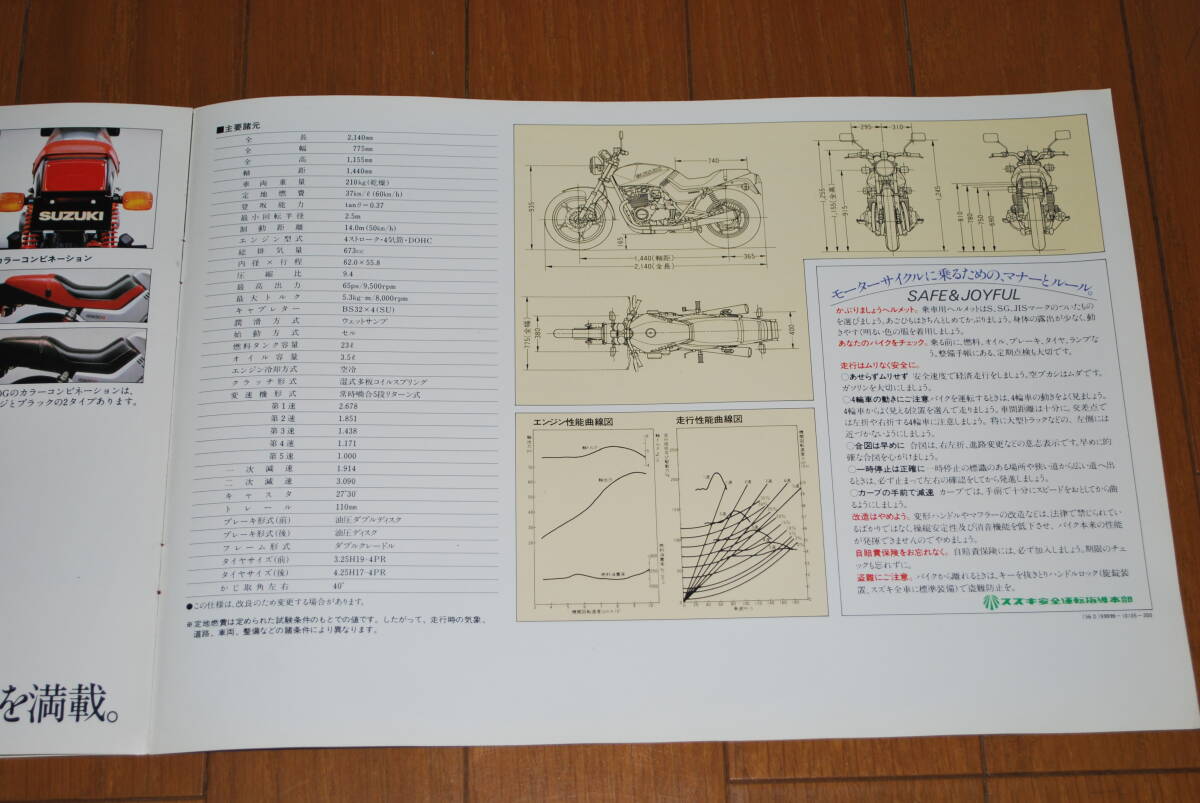 SUZUKI
カラーコンビネーション
0Gのカラーコンビネーションは、
ジとブラックの2タイプあります。
を満載。
■主要諸元
全長 2,140mm
全幅 775mm
全高 1,155mm
軸距 1,440mm
車両重量 210kg(乾燥)
定地燃費 37km/ℓ(60km/h)
登坂能力 tanθ=0.37
最小回転半径 2.5m
制動距離 14.0m(50km/h)
エンジン型式 4ストローク・4気筒・DOHC
総排気量 673cc
内径×行程 62.0×55.8
圧縮比 9.4
最高出力 65ps/9,500rpm
最大トルク 5.3kg-m/8,000rpm
キャブレター BS32×4(SU)
潤滑方式 ウェットサンプ
始動方式 セル
燃料タンク容量 23ℓ
オイル容量 3.5ℓ
エンジン冷却方式 空冷
クラッチ形式 湿式多板コイルスプリング
変速機形式 常時噛合5段リターン式
第1速 2.678
第2速 1.851
第3速 1.438
第4速 1.171
第5速 1.000
一次減速 1.914
二次減速 3.090
キャスタ 27°30′
トレール 110mm
ブレーキ形式(前) 油圧ダブルディスク
ブレーキ形式(後) 油圧ディスク
フレーム形式 ダブルクレードル
タイヤサイズ(前) 3.25H19-4PR
タイヤサイズ(後) 4.25H17-4PR
かじ取角左右 40°
●この仕様は、改良のため変更する場合があります。
※定地燃費は定められた試験条件のもとでの値です。したがって、走行時の気象、
道路、車両、整備などの諸条件により異なります。
740
935
165
1,440(軸距)
365
2,140(全長)
295
310
1,255
1,155(全高)
915
1,245
810
780
750
690
775(全幅)
380
400
エンジン性能曲線図
軸トルク
軸出力
燃料消費率
機関回転速度(rpm×10³)
走行性能曲線図
車速(km/h)
モーターサイクルに乗るための、マナーとルール。
SAFE&JOYFUL
かぶりましょうヘルメット。乗車用ヘルメットはS、SG、JISマークのついたもの
を選びましょう。あごひもはきちんとしめてかぶりましょう。身体の露出が少なく、動
きやすく明るい色の服を着用しましょう。
あなたのバイクをチェック。乗る前に、燃料、オイル、ブレーキ、タイヤ、ランプなど
う。整備手帳にある、定期点検も大切です。
走行はムリなく安全に。
○あせらずムリせず 安全速度で経済走行をしましょう。空ブカシはムダです。
ガソリンを大切にしましょう。
○4輪車の動きにご注意 バイクを運転するときは、4輪車の動きをよく見ましょう。
4輪車からよく見える位置を選んで走りましょう。車間距離は十分に。交差点で
は左折や右折する4輪車に注意しましょう。特に大型トラックなどの、左側には
近づかないようにしましょう。
○合図は早めに 合図は、右左折、進路変更などの意志表示です。早めに的
確な合図を心がけましょう。
○一時停止は正確に 一時停止の標識のある場所や狭い道から広い道へ出
るときは、必ず止まって左右の確認をしてから発進しましょう。
○カーブの手前で減速 カーブでは、手前で十分にスピードをおとしてから曲
るようにしましょう。
改造はやめよう。変形ハンドルやマフラーの改造などは、法律で禁じられてい
るばかりではなく、操縦安定性及び消音機能を低下させ、バイク本来の性能
が発揮できませんのでやめましょう。
自賠責保険をお忘れなく。自賠責保険には、必ず加入しましょう。期限のチェ
ックも忘れずに。
盗難にご注意。バイクから離れるときは、キーを抜きとりハンドルロック(施錠装
置、スズキ全車に標準装備)で盗難防止を。
スズキ安全運転指導本部